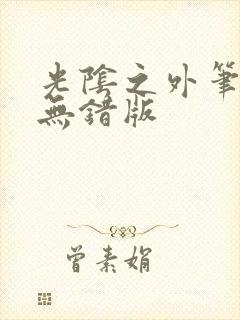 光陰之外筆
無錯版
曾素娟